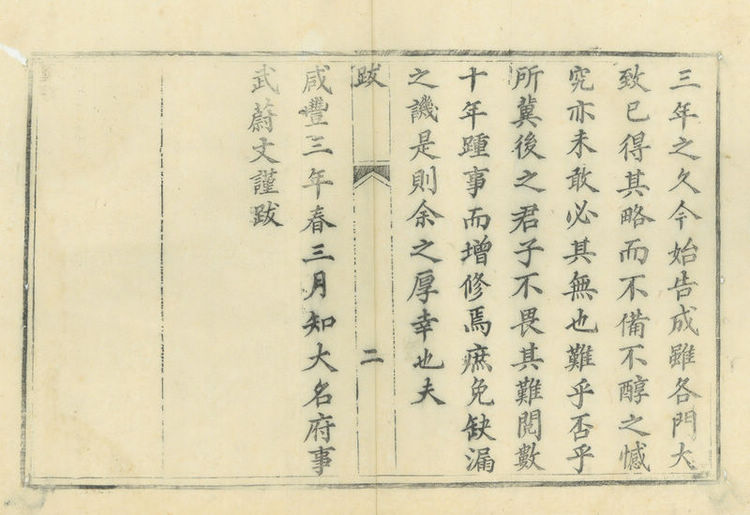 三年之久今始告成雖各門大
致已得其略而不備不醇之憾
究亦未敢必其無也難乎否乎
所冀後之君子不畏其難閱數
十年踵事而增修焉庶免缺漏
之譏是則余之厚幸也夫
跋 二
咸豐三年春三月知大名府事
武蔚文謹跋